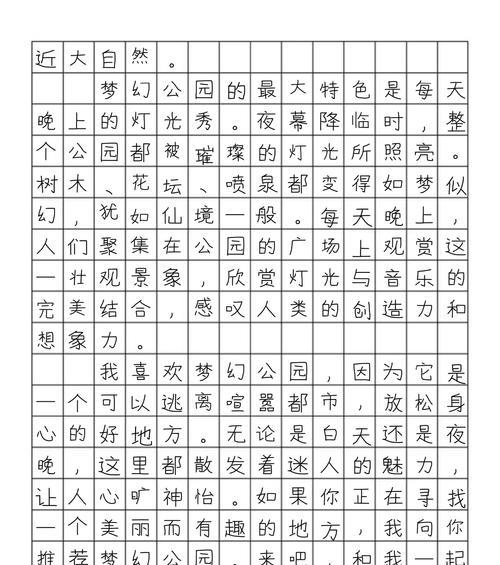 近大自然。
梦幻公园的最大特色是每天
晚上的灯光秀。夜幕降临时，整
个公园都被璀璨的灯光所照亮。
树木、花坛、喷泉都变得如梦似
幻，犹如仙境一般。每天晚上，
人们聚集在公园的广场上观赏这
一壮观景象，欣赏灯光与音乐的
完美结合，感叹人类的创造力和
想象力。
我喜欢梦幻公园，因为它是
一个可以逃离喧嚣都市，放松身
心的好地方。无论是白天还是夜
晚，这里都散发着迷人的魅力，
让人心旷神怡。如果你正在寻找
一个美丽而有趣的地方，我向你
推荐梦幻公园。来吧，和我一起